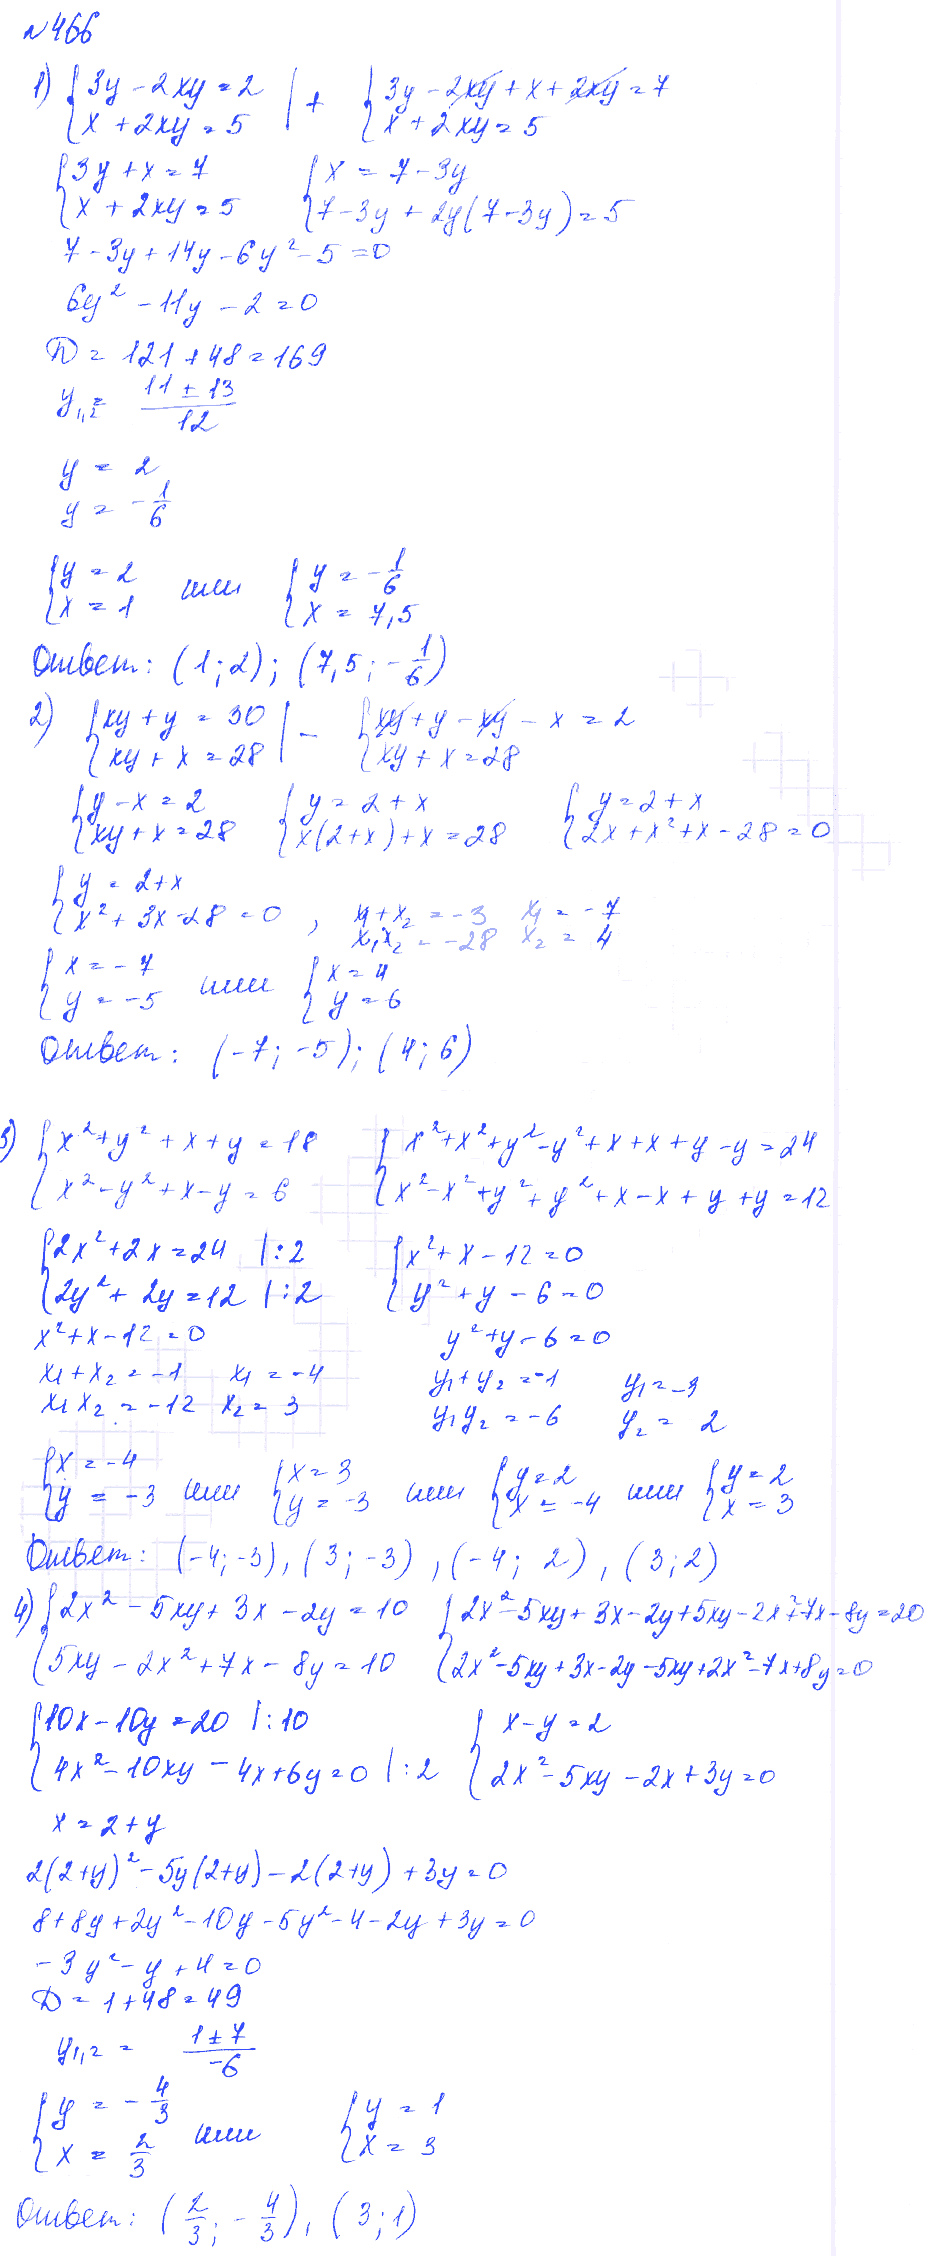 №466
1) {3y - 2xy = 2 | + {3y - 2xy + x + 2xy = 7
{x + 2xy = 5 {x + 2xy = 5
{3y + x = 7 {x = 7 - 3y
{x + 2xy = 5 {7 - 3y + 2y(7 - 3y) = 5
7 - 3y + 14y - 6y² - 5 = 0
6y² - 11y - 2 = 0
D = 121 + 48 = 169
y₁,₂ = (11 ± 13)/12
y = 2
y = -1/6
{y = 2 или {y = -1/6
{x = 1 {x = 7,5
Ответ: (1; 2); (7,5; -1/6)
2) {xy + y = 30 | - {xy + y - xy - x = 2
{xy + x = 28 {xy + x = 28
{y - x = 2 {y = 2 + x {y = 2 + x
{xy + x = 28 {x(2 + x) + x = 28 {2x + x² + x - 28 = 0
{y = 2 + x
{x² + 3x - 28 = 0 , x₁ + x₂ = -3 x₁ = -7
x₁x₂ = -28 x₂ = 4
{x = -7 или {x = 4
{y = -5 {y = 6
Ответ: (-7; -5); (4; 6)
3) {x² + y² + x + y = 18 {x² + x² + y² - y² + x + x + y - y = 24
{x² - y² + x - y = 6 {x² - x² + y² + y² + x - x + y + y = 12
{2x² + 2x = 24 |:2 {x² + x - 12 = 0
{2y² + 2y = 12 |:2 {y² + y - 6 = 0
x² + x - 12 = 0 y² + y - 6 = 0
x₁ + x₂ = -1 x₁ = -4 y₁ + y₂ = -1 y₁ = -3
x₁x₂ = -12 x₂ = 3 y₁y₂ = -6 y₂ = 2
{x = -4 или {x = 3 или {y = 2 или {y = 2
{y = -3 {y = -3 {x = -4 {x = 3
Ответ: (-4; -3), (3; -3), (-4; 2), (3; 2)
4) {2x² - 5xy + 3x - 2y = 10 {2x² - 5xy + 3x - 2y + 5xy - 2x² + 7x - 8y = 20
{5xy - 2x² + 7x - 8y = 10 {2x² - 5xy + 3x - 2y - 5xy + 2x² - 7x + 8y = 0
{10x - 10y = 20 |:10 {x - y = 2
{4x² - 10xy - 4x + 6y = 0 |:2 {2x² - 5xy - 2x + 3y = 0
x = 2 + y
2(2 + y)² - 5y(2 + y) - 2(2 + y) + 3y = 0
8 + 8y + 2y² - 10y - 5y² - 4 - 2y + 3y = 0
-3y² - y + 4 = 0
D = 1 + 48 = 49
y₁,₂ = (1 ± 7)/-6
{y = -4/3 или {y = 1
{x = 2/3 {x = 3
Ответ: (2/3; -4/3), (3; 1)